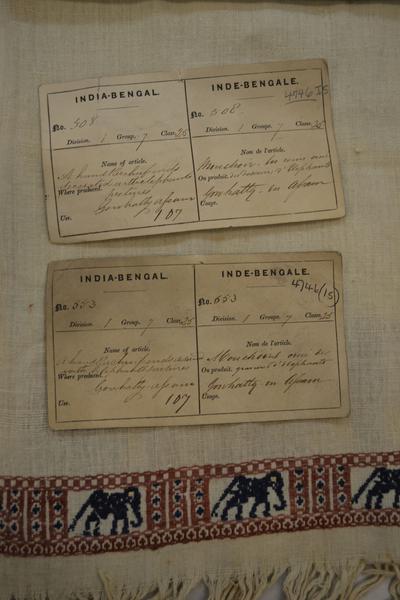 INDIA-BENGAL.
No. 508
Division. 1 Group. 7 Class. 25
Name of article.
A handkerchief
decorated with elephants
Where produced.
Gowhatty Assam
Use. 107
INDE-BENGALE.
4746
No. 508.
Division. 1 Group. 7 Class. 25
Nom de l'article.
Mouchoir
On produit. d'elephants
Gowhatty en Assam
Usage.
INDIA-BENGAL.
No. 553
Division. 1 Group. 7 Class. 25
Name of article.
A handkerchief
with elephants
Where produced.
Gowhatty Assam
Use. 107
INDE-BENGALE.
4746 (15)
No. 553
Division. 1 Group. 7 Class. 25
Nom de l'article.
Mouchoirs
On produit. d'elephants
Gowhatty en Assam
Usage.